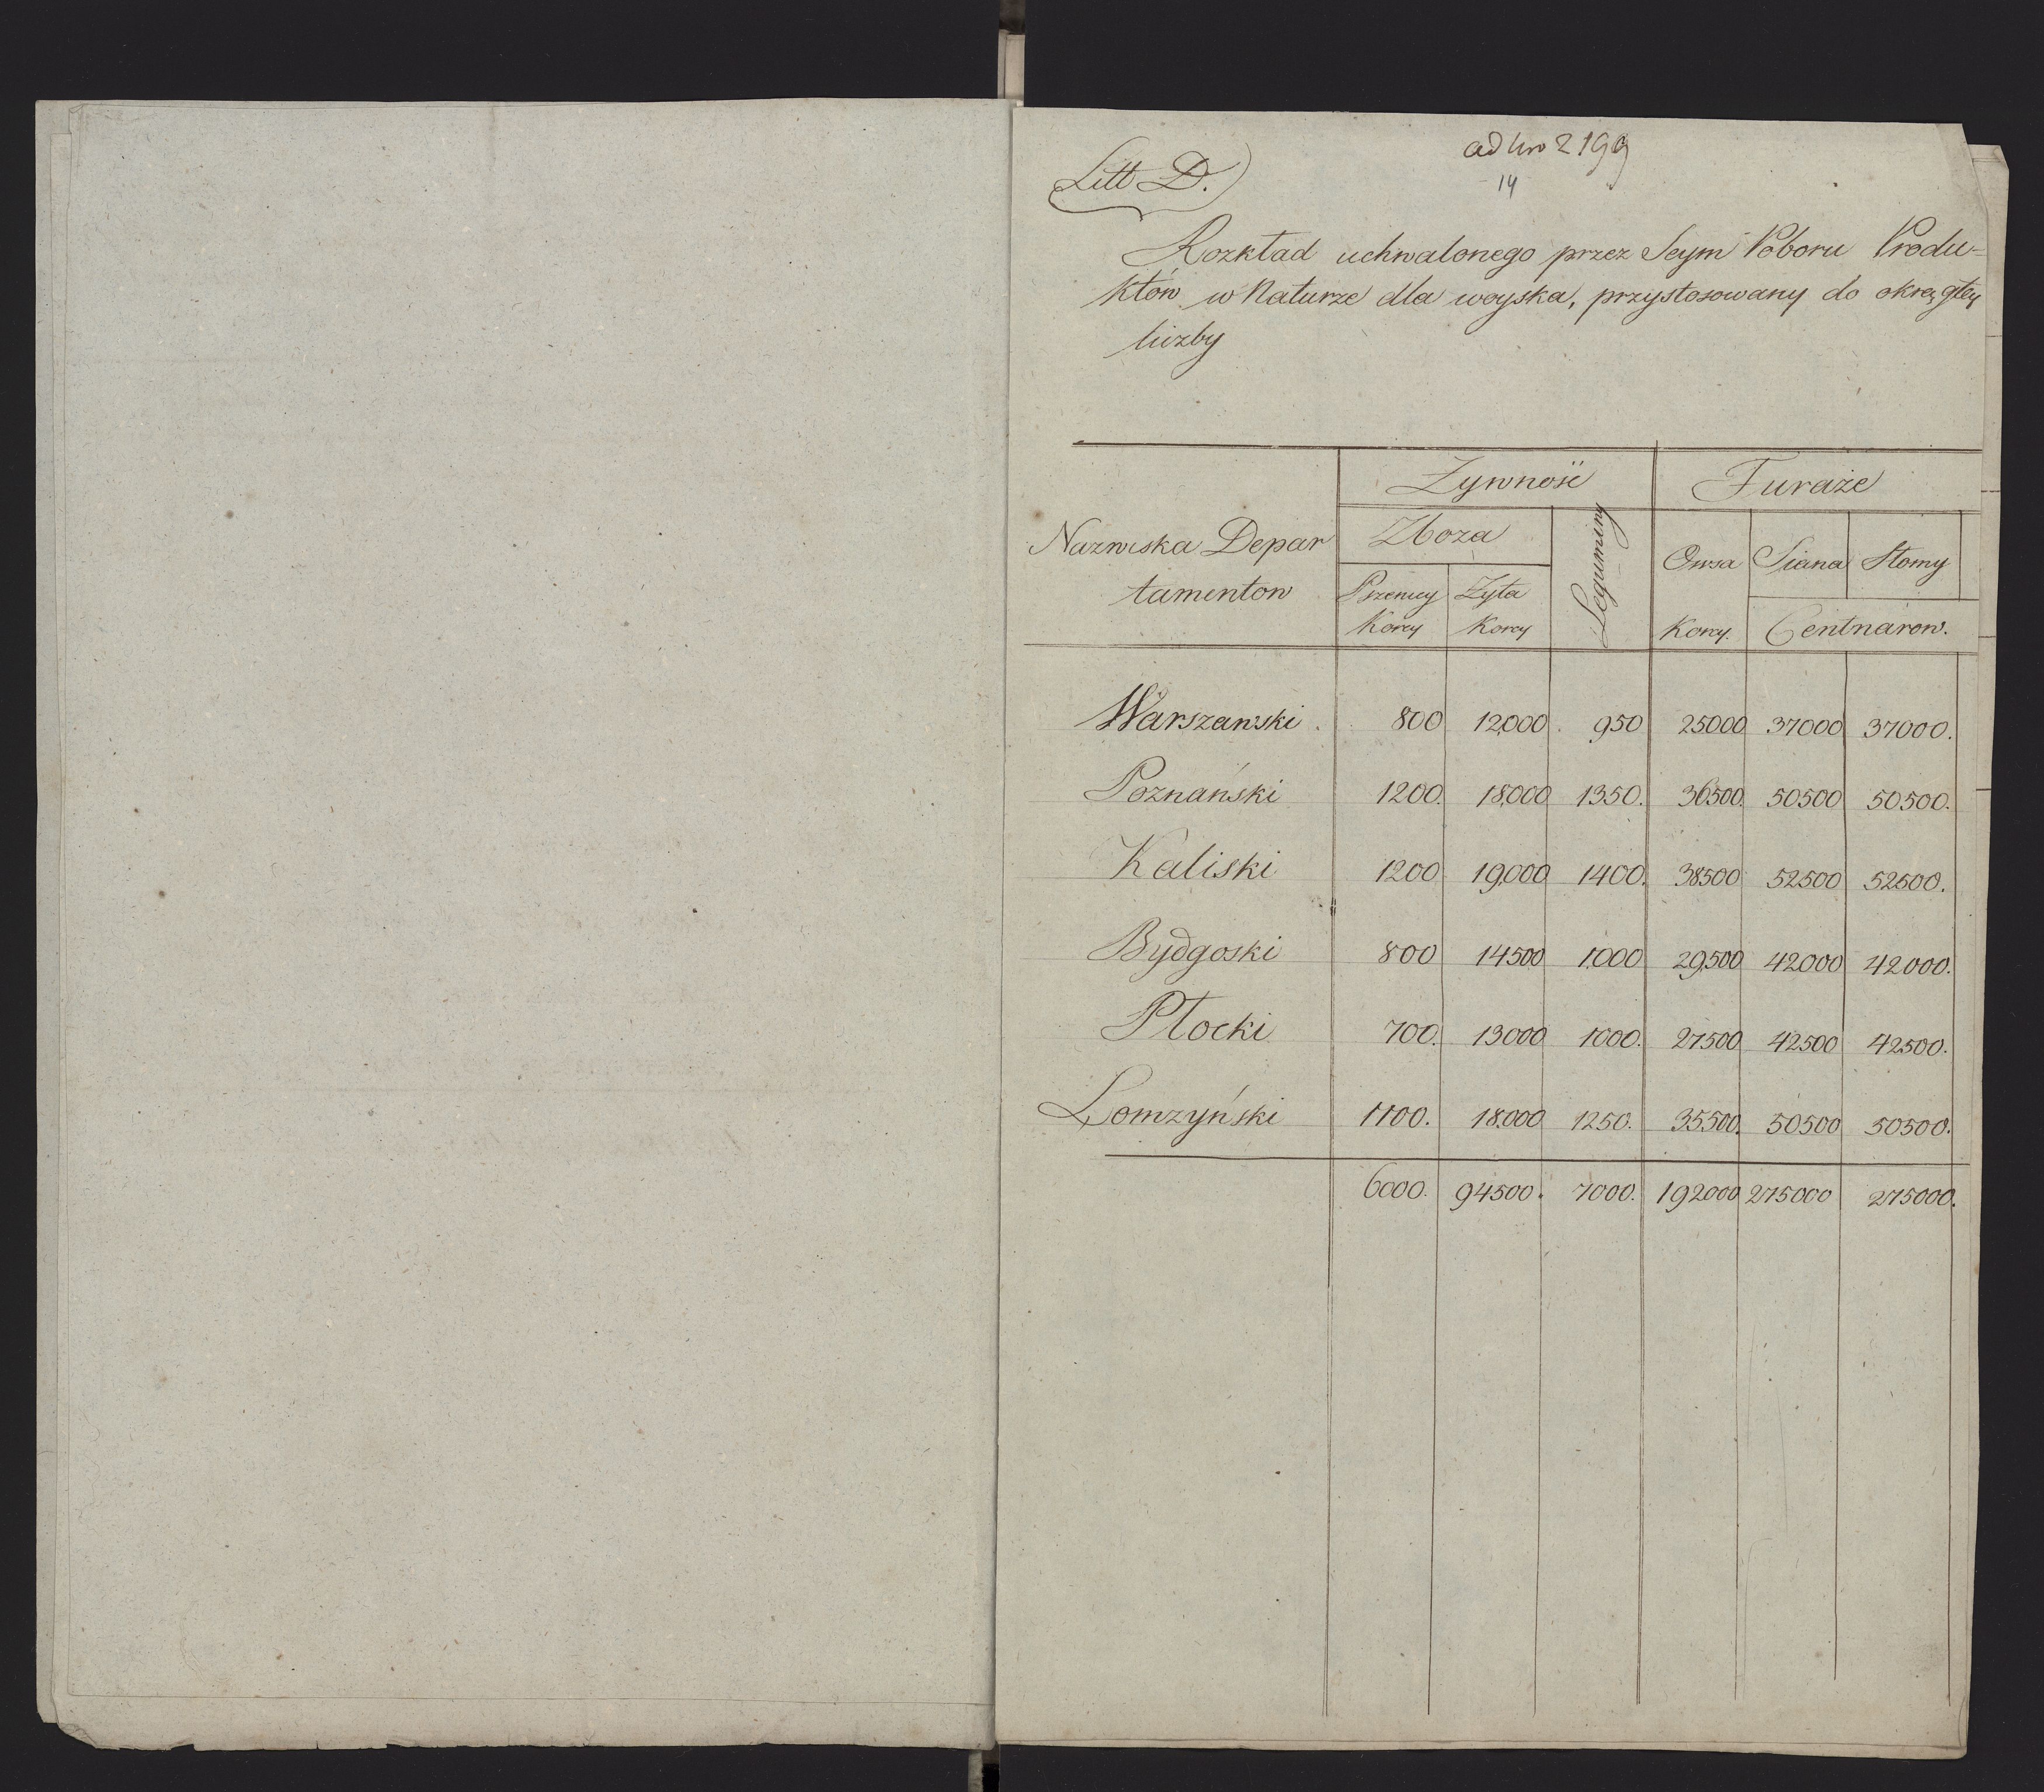 ad Nro 2199
14
Litt D.
Rozkład uchwalonego przez Seym Poboru Produ=
któw w Naturze dla woyska, przystosowany do okrągłey
liczby
Nazwiska Depar
tamentow
Zywność
Furaże
Zboza
Leguminy
Owsa Siana Słomy
Pszenicy Zyta
Korcy Korcy Korcy. Centnarow.
Warszawski. 800 12,000. 950 25000 37000 37000.
Poznański 1200. 18,000 1350. 36500. 50500 50500.
Kaliski 1200 19,000 1400. 38500 52500 52500.
Bydgoski 800 14500 1,000 29,500 42000 42000.
Płocki 700. 13000 1000. 27500 42500 42500.
Lomzyński 1100. 18,000 1250. 35,500. 50500 50500.
6000. 94500. 7000. 192000 275000 275000.